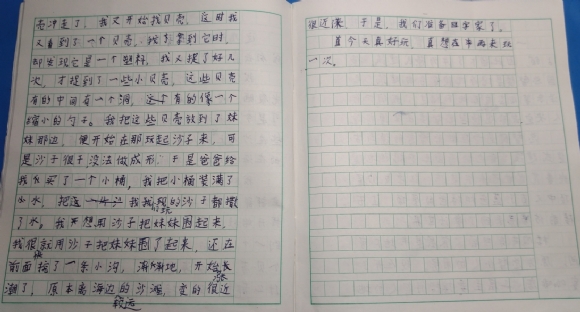 壳冲走了，我又开始找贝壳，这时我
又看到了一个贝壳，拿到它时，
却发现它是一个塑料，我又捞了好几
次，才捞到了一些小贝壳，这些贝壳
有的中间有一个洞，有的像一个
缩小的勺子。我把这些贝壳放到了妹
妹那边，便开始在那玩起沙子来，可
是沙子很干没法做成形，于是爸爸给
我买了一个小桶，我把小桶装满了
水，把我挖的沙子都撒
了水。我想用沙子把妹妹围起来，
我很快就用沙子把妹妹围了起来，还在
前面搞了一条小沟，渐渐地，开始涨
潮了，原本离海边较远的沙滩，变的很近
很近，于是，我们准备回家了。
今天真好玩，真想在再来玩
一次。